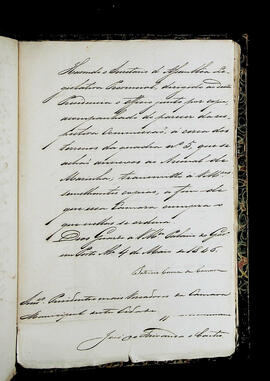 Havendo o Secretario d'Assemblea Le-
gislativa Provincial, dirigido a esta
Presidencia o officio junto por copia,
acompanhado do parecer da res-
pectiva Commissão, á cerca dos
terrenos da quadra nº 5, que se
achão
Marinha, transmitto á VMces
semelhantes copias, a fim de
que essa Camara cumpra o
que nellas se ordena.
Deos Guarde a VMces Palacio do Govº
em Porto Alegre 4 de Maio de 1846.
Senres Presidente e mais Vereadores da Camara
Municipal desta Cidade.